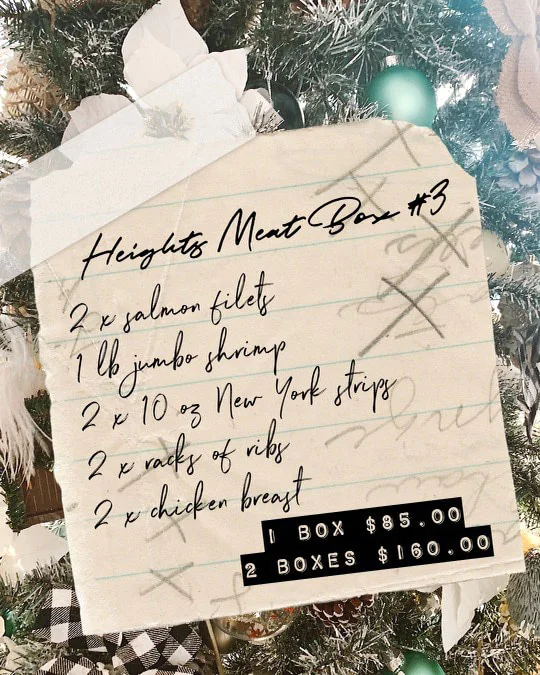 Heights Meat Box #3
2 x salmon filets
1 lb jumbo shrimp
2 x 10 oz New York strips
2 x racks of ribs
2 x chicken breast
1 BOX $85.00
2 BOXES $160.00